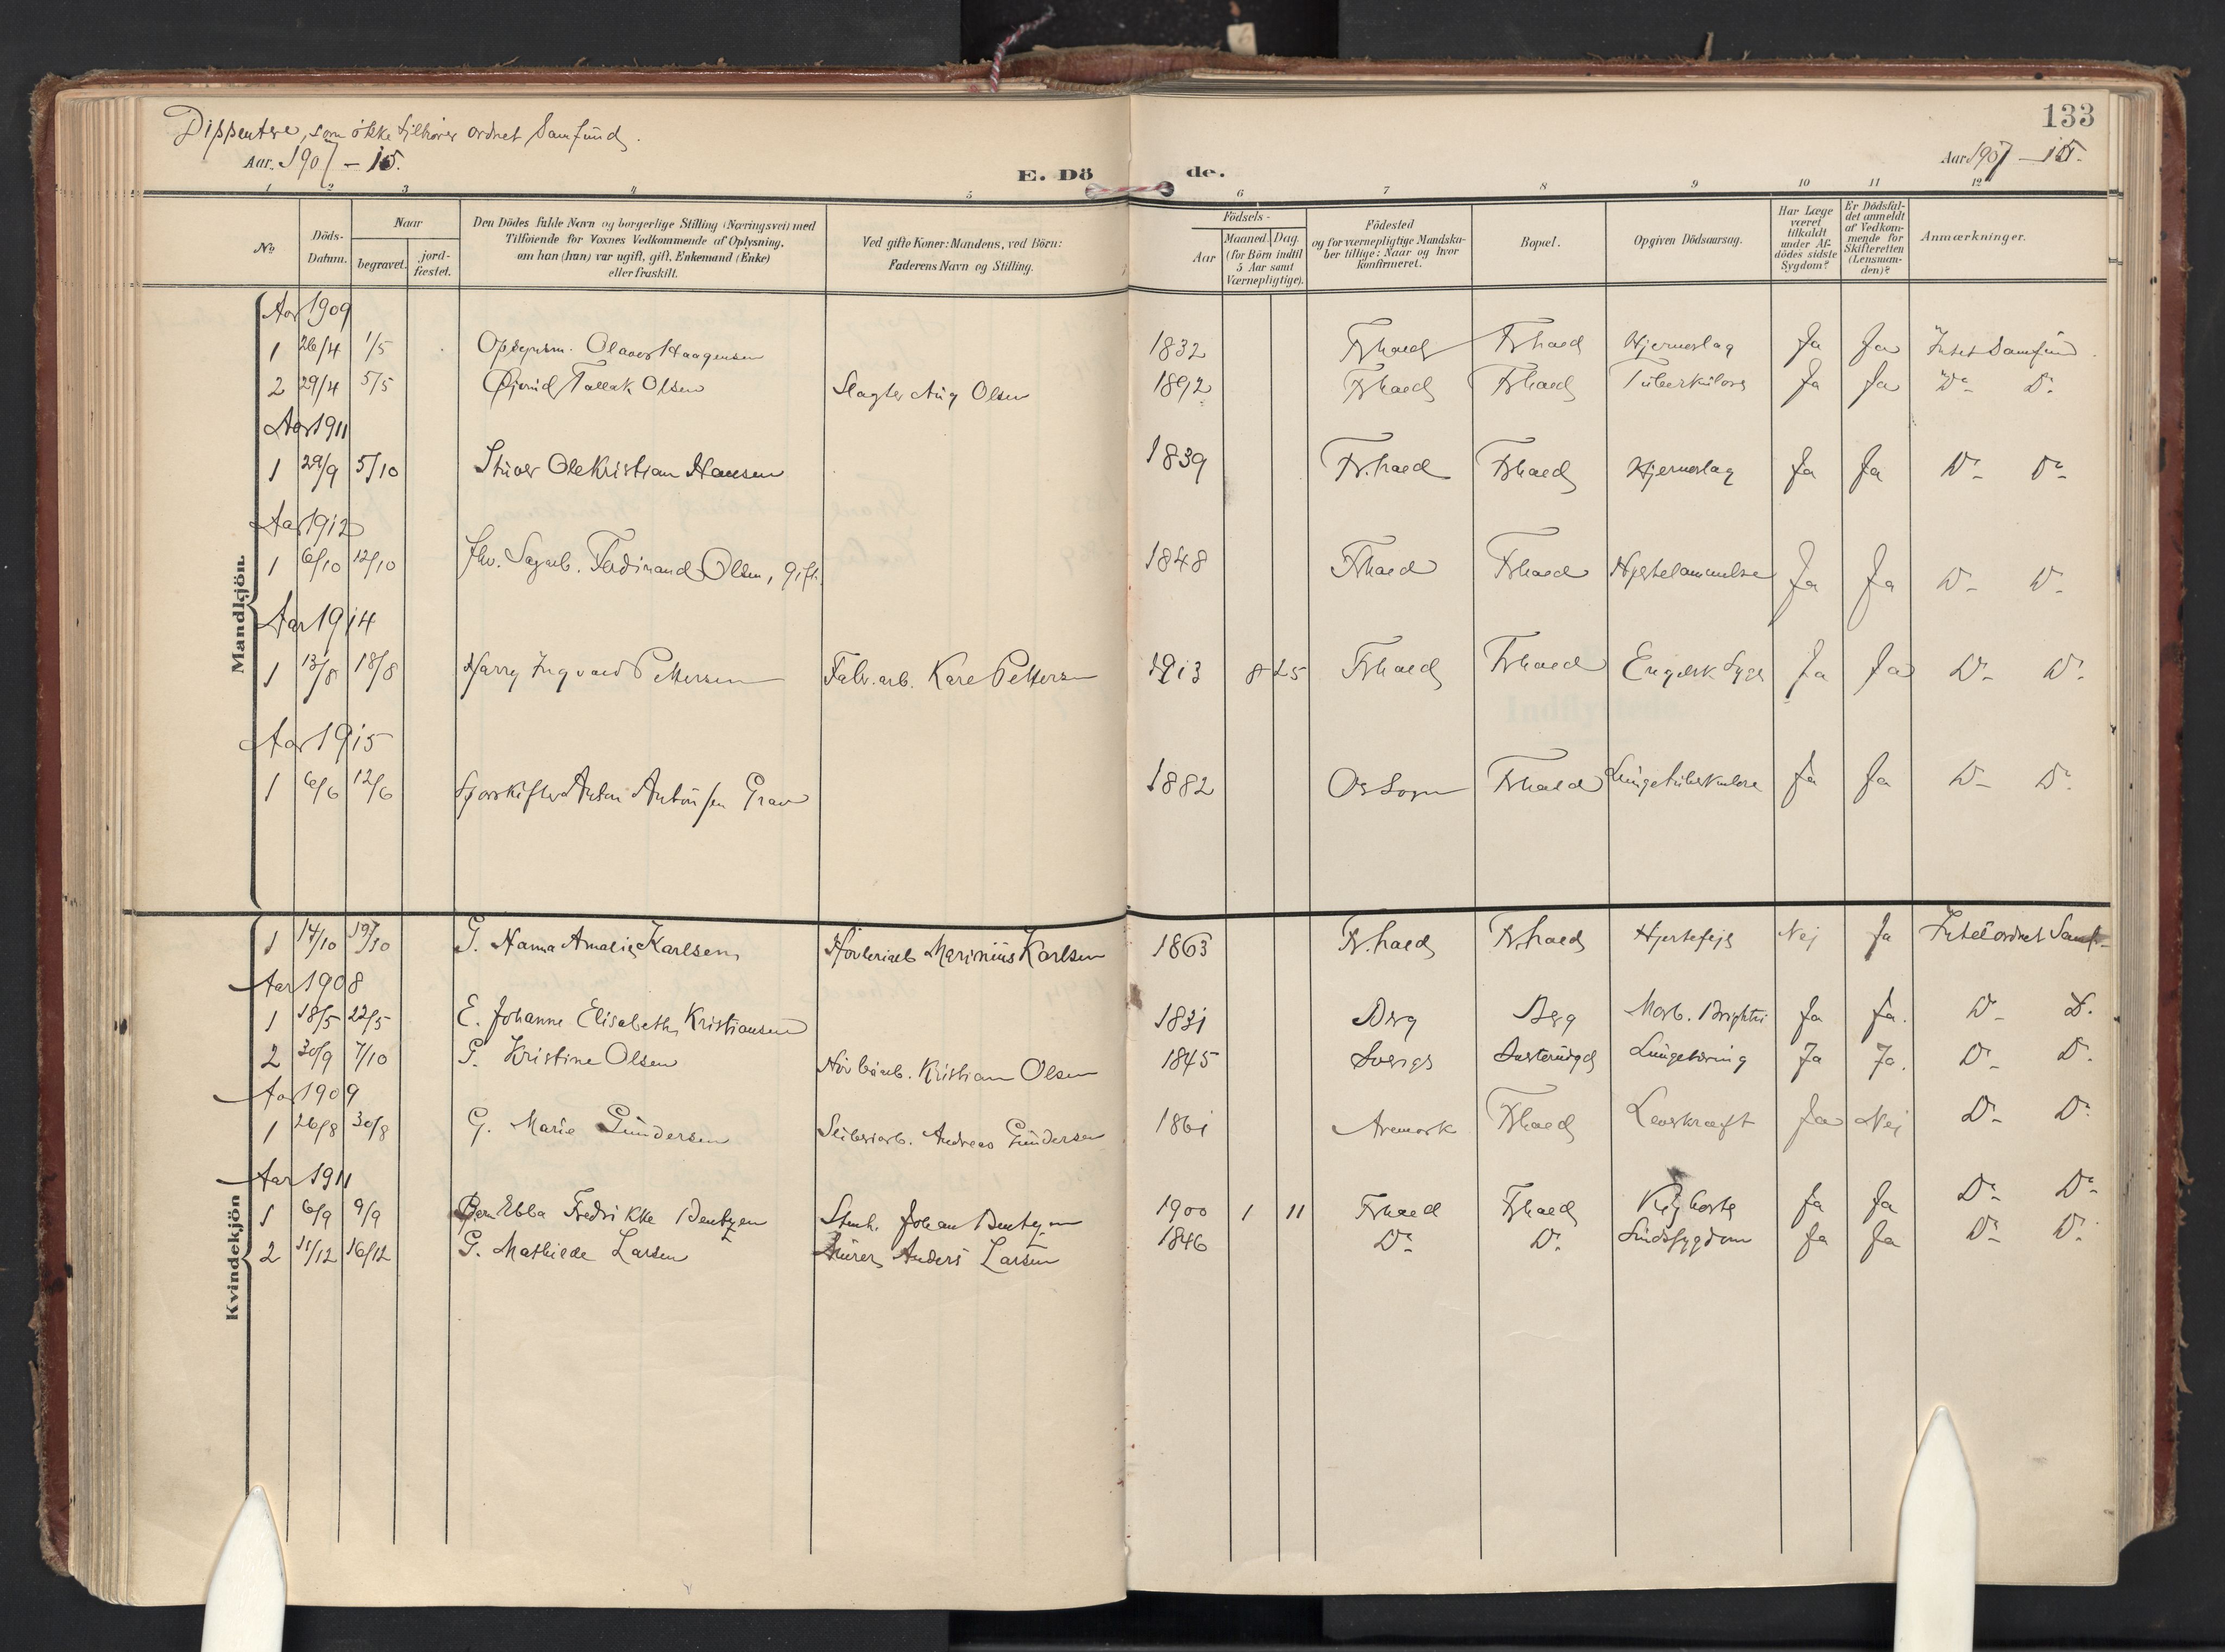 133
Dissentere, som ikke tilhører ordnet Samfund.
Aar. 1907 – 15.
Aar 1907 – 15.
E. Dö de.
1 2 3 4 5 6 7 8 9 10 11 12
No
Döds-Datum.
Naar
begravet.
jord-fæstet.
Den Dödes fulde Navn og borgerlige Stilling (Næringsvei) med
Tilföiende for Voxnes Vedkommende af Oplysning,
om han (hun) var ugift, gift, Enkemand (Enke)
eller fraskilt.
Ved gifte Koner: Mandens, ved Börn:
Faderens Navn og Stilling.
Födsels-
Aar
Maaned. Dag.
(for Börn indtil
5 Aar samt
Værnepligtige).
Födested
og for værnepligtige Mandska-
ber tillige: Naar og hvor
konfirmeret.
Bopæl.
Opgiven Dödsaarsag.
Har Læge
været
tilkaldt
under Af-
dödes sidste
Sygdom?
Er Dödsfal-
det anmeldt
af Vedkom-
mende for
Skifteretten
(Lensman-
den)?
Anmærkninger.
Mandkjön.
Aar 1909
1 26/4 1/5 Opsynsm. Olaves Haagensen 1832 Frhald Frhald Hjerneslag Ja Ja Intet Samfund.
2 29/4 5/5 Øivind Tallak Olsen Slagter Aug Olsen 1892 Frhald Frhald Tuberkulose Ja Ja Do Do
Aar 1911
1 29/9 5/10 Stuer Ole Kristian Hansen 1839 Fr.hald Frhald Hjerneslag Ja Ja Do Do
Aar 1912
1 6/10 12/10 Fhv. Sagarb. Ferdinand Olsen, gift. 1848 Frhald Frhald Hjertelammelse Ja Ja Do Do
Aar 1914
1 13/8 18/8 Harry Ingvald Pettersen Fabr.arb. Kare Pettersen 1913 8 25 Frhald Frhald Engelsk Syge Ja Ja Do Do
Aar 1915
1 6/6 12/6 Sporskifter Anton Antonsen Grav 1882 Os Sogn Frhald Lungetuberkulose Ja Ja Do Do
Kvindekjön
1 14/10 19/10 G. Hanna Amalie Karlsen Høvleriarb Marinius Karlsen 1863 Fr.hald Fr.hald Hjertefejl Nej Ja Intet ordnet Samf.
Aar 1908
1 18/5 22/5 E. Johanne Elisabeth Kristiansen 1831 Berg Berg Morb. Brightii Ja Ja. Do Do
2 30/9 7/10 G. Kristine Olsen Kristian Olsen 1845 Sverige Ja Ja. Do Do
Aar 1909
1 26/8 30/8 G. Marie Gundersen Sliberiarb. Andreas Gundersen 1861 Aremark Frhald Leverkræft Ja Nej Do Do
Aar 1911
1 6/9 9/9 Barn Ebba Fredrikke Bentzen Stenh. Johan Bentzen 1900 1 11 Frhald Frhald Kighoste Ja Ja Do Do
2 11/12 16/12 G. Mathilde Larsen Murer Anders Larsen 1846 Do Do Sindssygdom Ja Ja Do Do